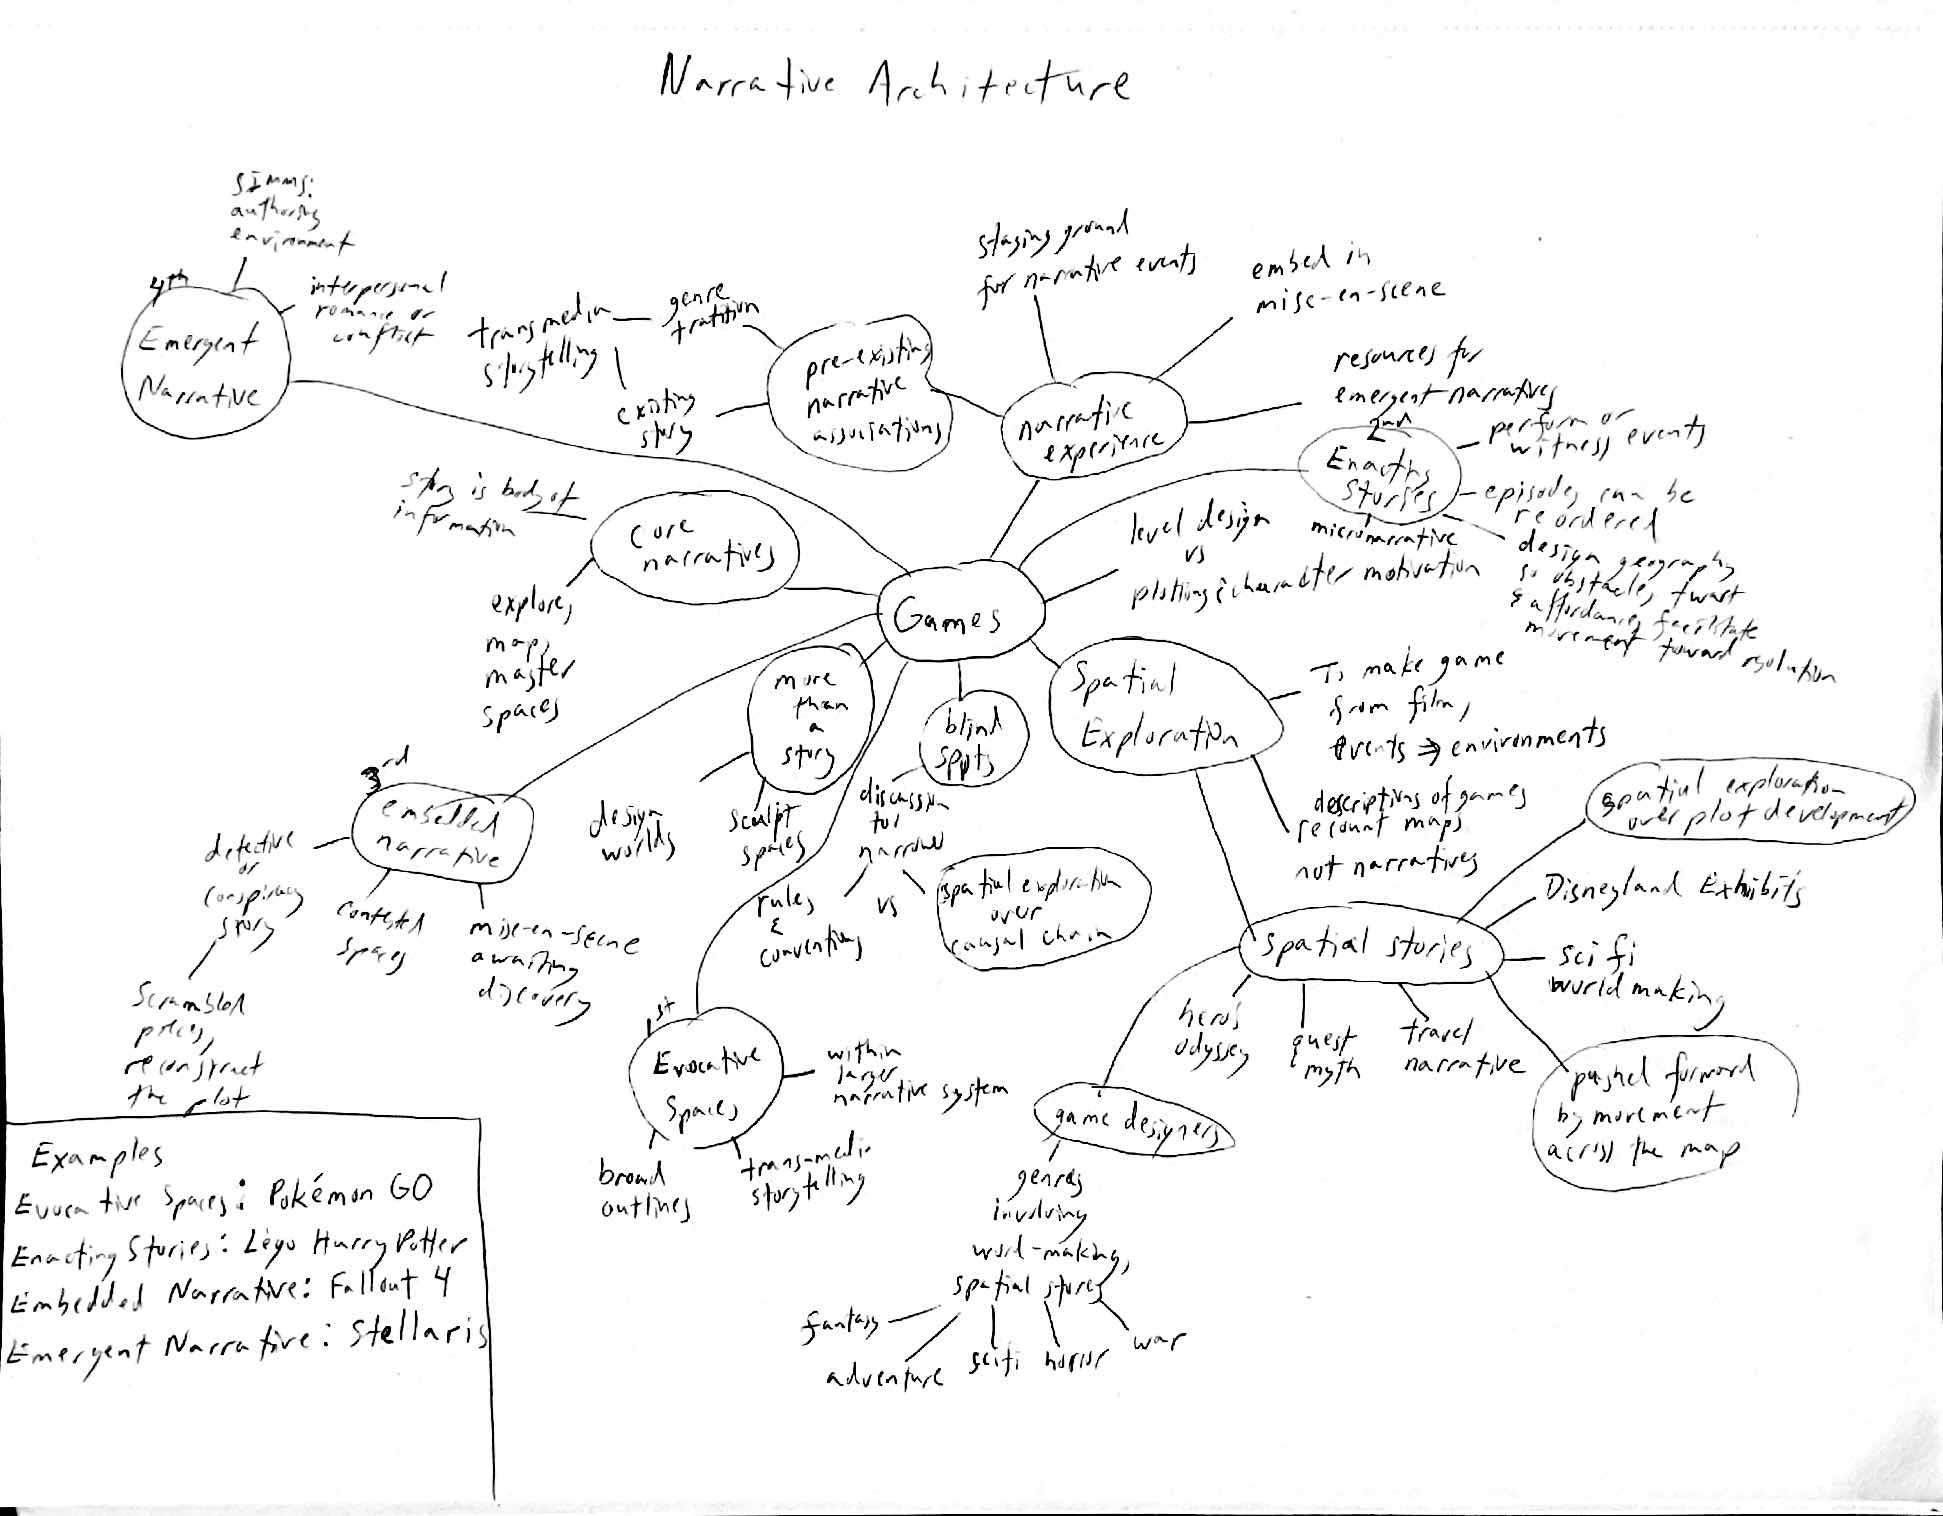 Narrative Architecture
SIMMS:
authoring
environment
4th
Emergent
Narrative
interpersonal
romance or
conflict
transmedia
storytelling
genre
tratition
existing
story
pre-existing
narrative
associations
staging ground
for narrative events
embed in
mise-en-scene
resources for
emergent narratives
narrative
experience
2nd
Enacting
Stories
perform or
witness events
episodes can be
reordered
micronarrative
design geography
so obstacles twart
& affordances facilitate
movement toward resolution
level design
vs
plotting & character motivation
story is body of
information
core
narratives
explore,
map,
master
spaces
Games
more
than
a
story
design
worlds
sculpt
spaces
blind
spots
discussion
too
narrow
rules
&
conventions
vs
spatial exploration
over
causal chain
Spatial
Exploration
To make game
from film,
events ⇒ environments
descriptions of games
recount maps
not narratives
3rd
embedded
narrative
detective
or
conspiracy
story
Scrambled
pieces,
reconstruct
the plot
contested
spaces
mise-en-scene
awaiting
discovery
1st
Evocative
Spaces
within
larger
narrative system
broad
outlines
trans-media
storytelling
spatial stories
spatial exploration
over plot development
Disneyland Exhibits
sci fi
world making
pushed forward
by movement
across the map
hero's
odyssey
quest
myth
travel
narrative
game designers
genres
involving
world-making,
spatial stories
fantasy
adventure
scifi
horror
war
Examples
Evocative Spaces: Pokémon GO
Enacting Stories: Lego Harry Potter
Embedded Narrative: Fallout 4
Emergent Narrative: Stellaris